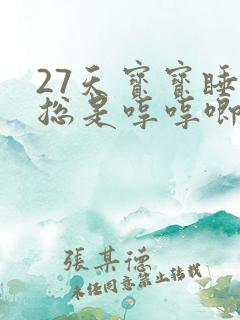 27天寶寶睡
總是哼哼唧
張某德
未經同意禁止轉載